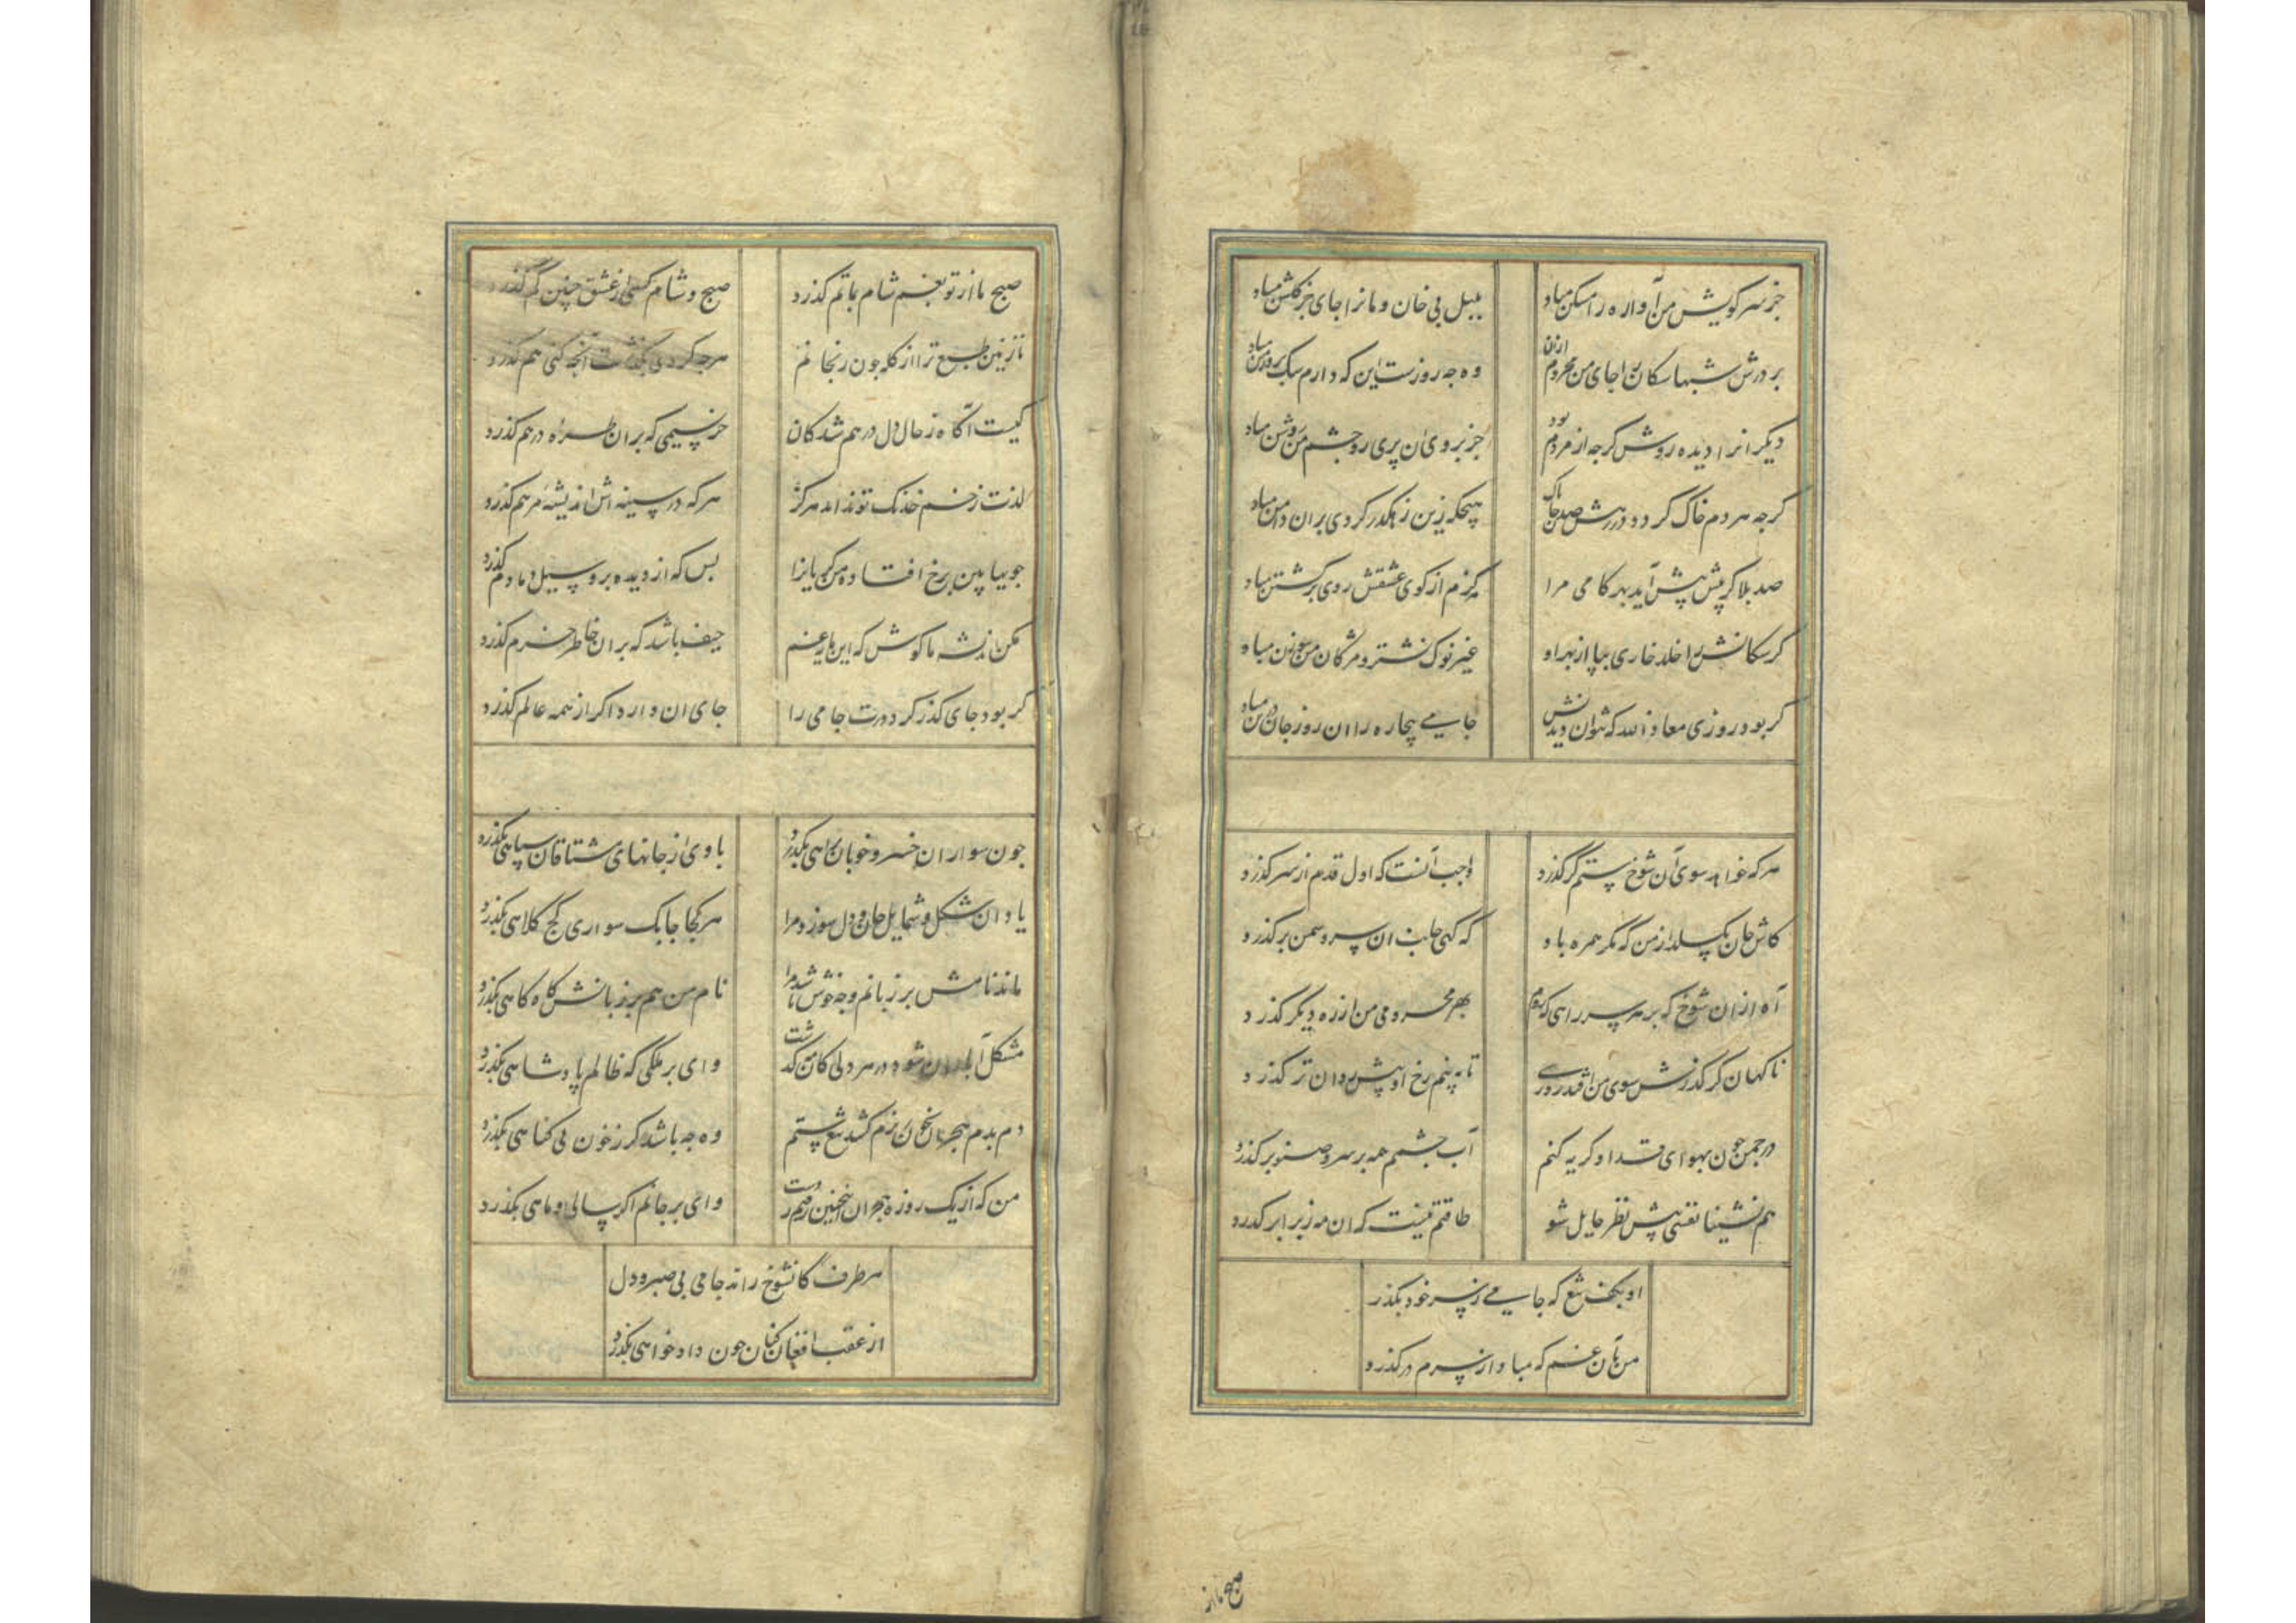 جز سر کویش من آواره را مسکن مباد
بلبل بی خان و مانرا جای جز کلشن مباد
بر درش شبها سکانرا جای من محروم ازان
وه چه روزست این که دارم سک بروز من مباد
دیکرانرا دیده روشن کرچه از مردم بود
جز بروی آن پری رو چشم من روشن مباد
کرچه هر دم خاک کردد در رهش صد جان پاک
هیچکه زین رهکذر کردی بران دامن مباد
صد بلا کر پیش پیش آید بهر کامی مرا
هرکزم از کوی عشقش روی برکشتن مباد
کر سکانش را خلد خاری بپا از بهر او
غیر نوک نشتر و مژکان من سوزن مباد
کر بود روزی معاذ الله که نتوان دیدنش
جامی بیچاره را ان روز جان در تن مباد
هر که خواهد سوی آن شوخ ستمکر کذرد
واجب آنست که اول قدم از سر کذرد
کاش جان بکسلد از من که مکر همره باد
که کهی جانب ان سرو سمن بر کذرد
آه ازان شوخ که بر هر سر راهی که روم
بهر محرومی من از ره دیکر کذرد
ناکهان کر کذرش سوی من افتد روزی
تا نه بینم رخ او پیش روان تر کذرد
در چمن چون بهوای قد او کریه کنم
آب چشمم همه بر سرو صنوبر کذرد
هم نشینا نفسی پیش نظر حایل شو
طاقتم نیست که ان مه ز برابر کذرد
او بکف تیغ که جامی ز سر خود بکذر
من بآن غم که مباد از سرم در کذرد
صبح ما از
صبح ما از تو بغم شام بماتم کذرد
صبح و شام کسی از عشق چنین کم کذرد
نازنین طبع ترا از کله چون رنجانم
هرچه کردی بکذشت آنچه کنی هم کذرد
کیست آکاه ز حال دل درهم شدکان
جز نسیمی که بران طره درهم کذرد
لذت زخم خدنک تو نداند هرکز
هر که در سینه اش اندیشه مرهم کذرد
چویها بین برخ افتاده من کریانرا
بس که از دیده برو سیل دمادم کذرد
مکن اندیشه ما کوش که این بار غم
حیف باشد که بران خاطر خرم کذرد
کر بود جای کذر کرد درت جامی را
جای ان دارد اکر از همه عالم کذرد
چون سواران خسرو خوبان براهی بکذرد
با وی از جانهای مشتاقان سپاهی بکذرد
یاد ان شکل و شمایل جان و دل سوزد مرا
هر کجا چابک سواری کج کلاهی بکذرد
ماند نامش بر زبانم وه چه خوش باشد مرا
نام من هم بر زبانش کاه کاهی بکذرد
مشکل آبادان شود در هر دلی کان مه کذشت
وای بر ملکی که ظالم پادشاهی بکذرد
دم بدم هجران بخون ریزم کشد تیغ ستم
وه چه باشد کر ز خون بی کناهی بکذرد
من که از یک روزه هجران اینچنین رفتم ز دست
وای بر جانم اکر سالی و ماهی بکذرد
هر طرف کانشوخ راند جامی بی صبر و دل
از عقب افغان کنان چون داد خواهی بکذرد